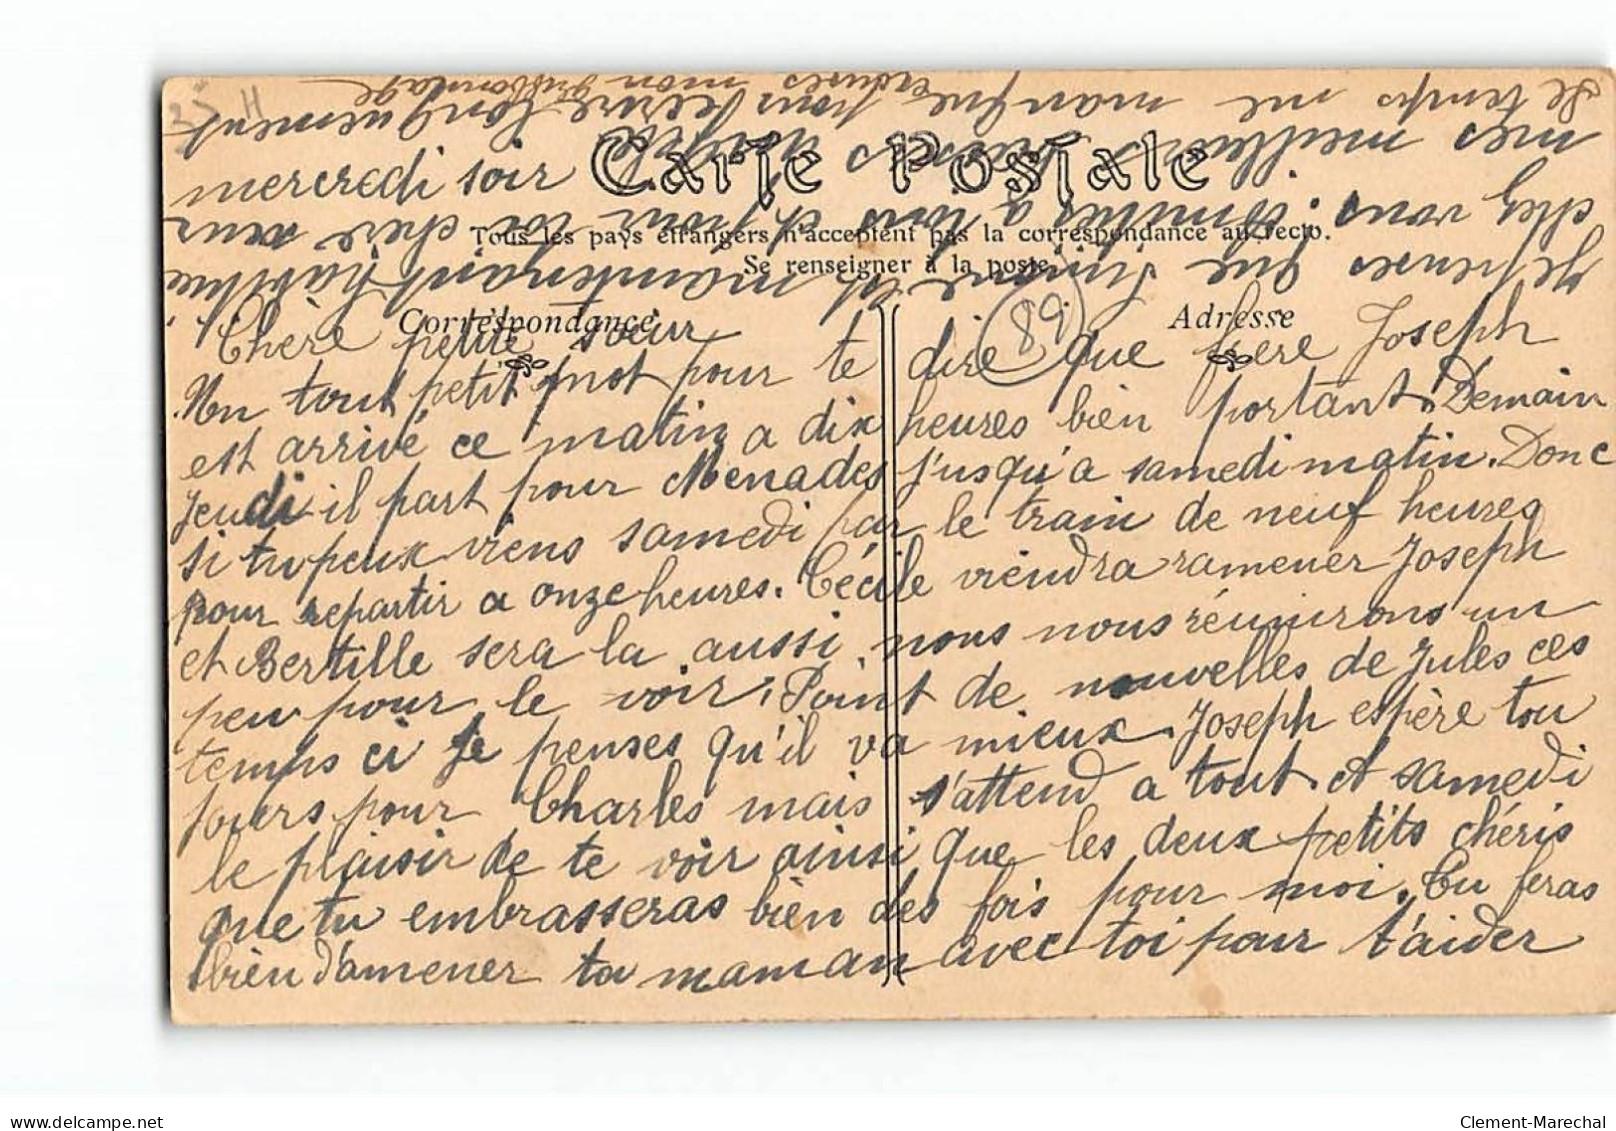 35 H
Carte Postale
Tous les pays étrangers n'acceptent pas la correspondance au recto.
Se renseigner à la poste
Correspondance
Adresse
89
mercredi soir
Chère petite sœur
Un tout petit mot pour te dire que frere Joseph
est arrivé ce matin a dix heures bien portant. Demain
jeudi il part pour Menades j'usqu'a samedi matin. Donc
si tu peux viens samedi par le train de neuf heures
pour repartir a onze heures. Cécile viendra ramener Joseph
et Bertille sera la aussi, nous nous réunirons un
peu pour le voir. Point de nouvelles de Jules ces
temps ci je penses qu'il va mieux. Joseph espère tou
jours pour Charles mais s'attend a tout. et samedi
le plaisir de te voir ainsi que les deux petits chéris
que tu embrasseras bien des fois pour moi. Tu feras
bien d'amener ta maman avec toi pour t'aider
Je penses que Simone est maintenant habituée
chez vous. amitiés a tous et pour toi chère sœur
mes meilleurs baisers
Le temps me manque pour t'écrire longuement
excuses mon gribouillage
Clement-Marechal
delcampe.net